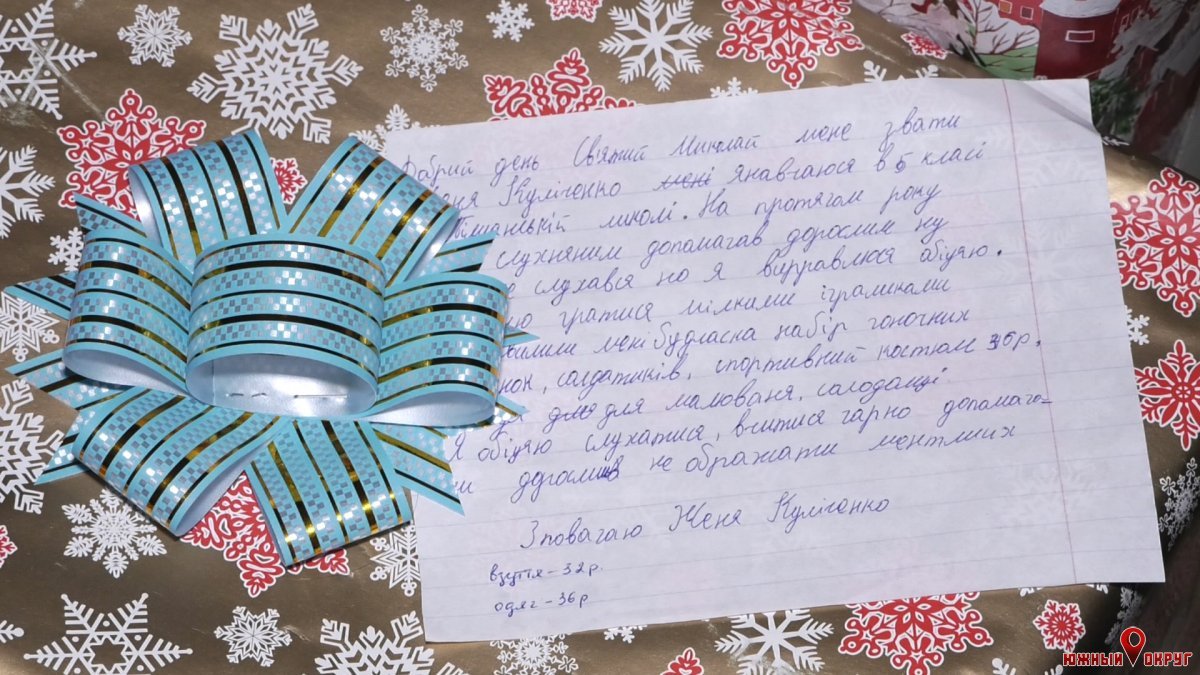 Добрий день Святий Миколай мене звати
Женя Куліченко мені янавчаюся в 5 класі
школі. На протягом року
слухняним допомагав дорослим ну
слухався но я виправлюся обіцяю.
гратися мілкими іграшками
мені будласка набір гоночних
солдатиків, спортивний костюм 36р.
для для малюваня, солодащі
Я обіцяю слухатися, вчитися гарно допомага-
ти дорослим не ображати ментших
Зповагаю Женя Куліченко
взуття-32р.
одяг-36р
ЮЖНЫЙ ОКРУГ